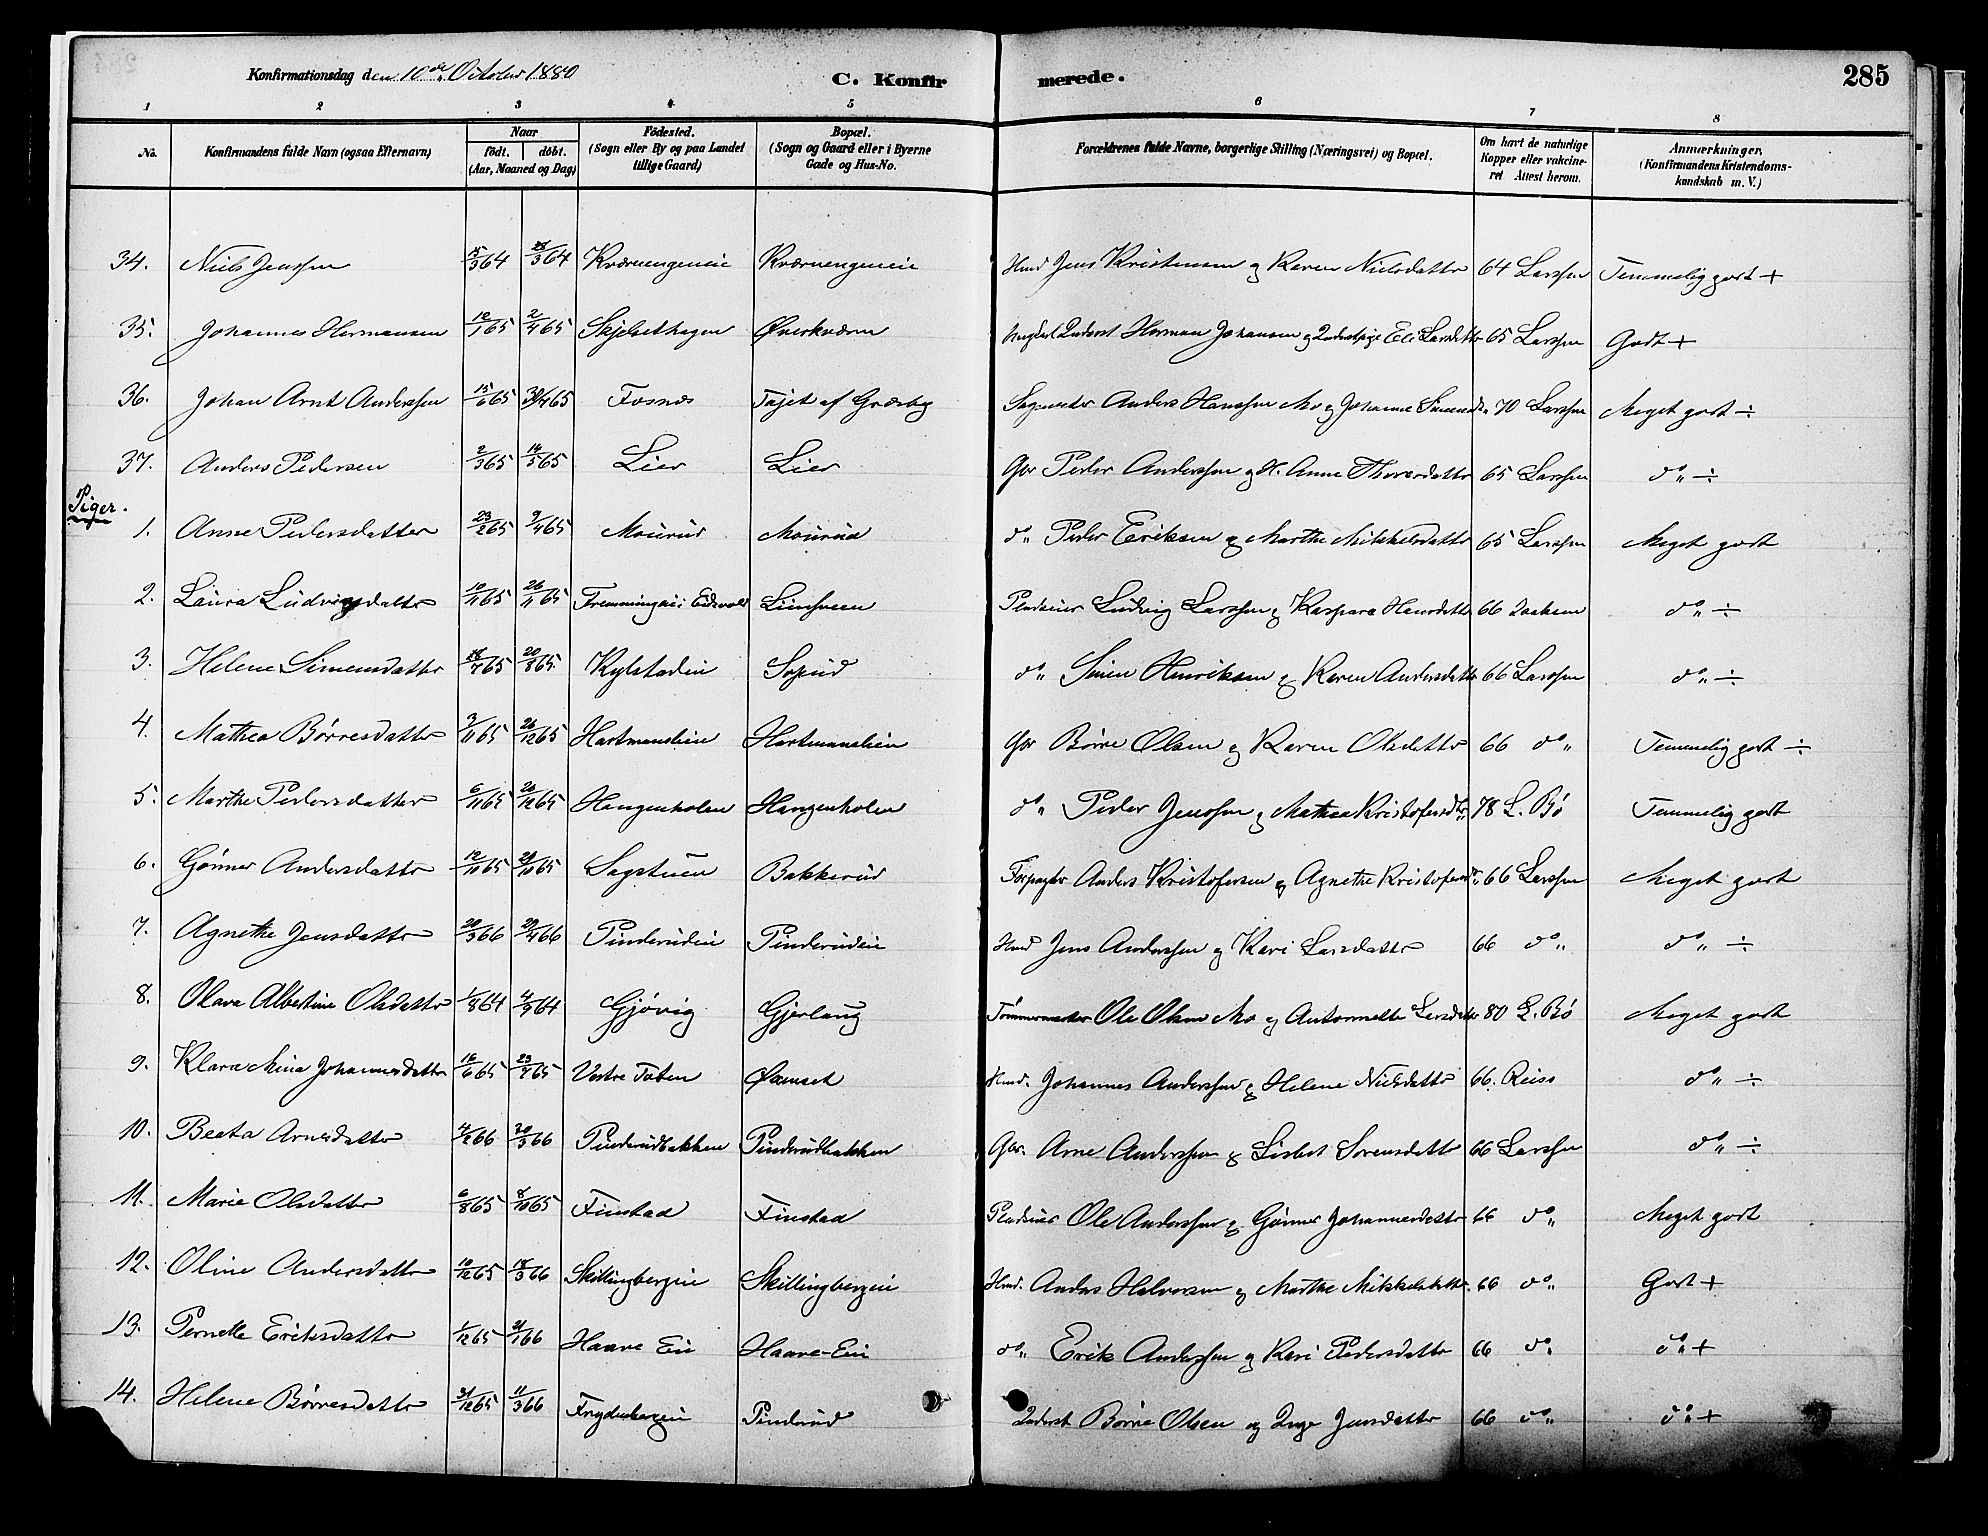 Konfirmationsdag den 10de October 1880 C. Konfirmerede. 285
1 2 3 4 5 6 7 8
No. Konfirmandens fulde Navn (ogsaa Efternavn) Naar födt. döbt. (Aar, Maaned og Dag) Födested. (Sogn eller By og paa Landet tillige Gaard) Bopæl. (Sogn og Gaard eller i Byerne Gade og Hus-No. Forældrenes fulde Navne, borgerlige Stilling (Næringsvei) og Bopæl. Om havt de naturlige Kopper eller vakcineret Attest herom. Anmærkninger. (Konfirmandens Kristendomskundskab m. V.)
34. Niels Jenssen 5/3 64 /3 64 Kværnengeneie Kværnengeneie Hmd Jens Kristensen og Karen Nielsdattr 64 Larssen Temmelig godt +
35. Johannes Hermansen 12/1 65 2/4 65 Skjelsethagen Øverkværn Ungkarl Inderst Herman Johansen og Inderstpige Eli Larsdattr 65 Larssen Godt +
36. Johan Arnt Anderssen 15/6 65 30/4 65 Fosnæs Tajet af Græsby Sagmester Anders Hanssen Mo og Johanne Simensdtr 70 Larssen Meget godt ÷
37. Anders Pedersen 2/3 65 14/5 65 Lier Lier Gbr Peder Anderssen og H. Anne Thoresdattr 65 Larssen do „ ÷
Piger.
1. Anne Pedersdatter 23/2 65 9/4 65 Mourud Mourud do „ Peder Eriksen og Marthe Mikkelsdattr 65 Larssen Meget godt
2. Laura Ludvigsdattr 10/11 65 26/11 65 Fremmingeie i Eidsvold Linsveen Pladseier Ludvig Larssen og Kaspara Hansdattr 66 Isaksen do „ ÷
3. Helene Simensdatter /7 65 20/8 65 Kylstadeie Sogud do „ Simen Henriksen og Karen Andersdattr 66 Larssen do „ ÷
4. Mathea Børresdattr 3/11 65 26/12 65 Hartmanslien Hartmanslien Gbr Børre Olsen og Karen Olsdattr 66 do „ Temmelig godt ÷
5. Marthe Pedersdatter 6/11 65 26/12 65 Haugenholen Haugenholen do „ Peder Jenssen og Mathea Kristofersdtr 78 L. Bø Temmelig godt
6. Gunner Andersdattr 12/10 65 29/10 65 Sagstuen Bakkerud Forpagter Anders Kristofersen og Agnethe Kristofersdtr 66 Larssen Meget godt
7. Agnethe Jensdattr 20/3 66 29/4 66 Pinderudeie Pinderudeie Hmd Jens Anderssen og Kari Larsdattr 66 do „ do „ ÷
8. Olava Albertine Olsdattr 1/8 64 4/9 64 Gjøvig Gjerlaug Tømmermester Ole Olsen Mo og Antonnette Larsdattr 80 L. Bø Meget godt
9. Klara Mina Johannesdattr 16/6 65 23/7 65 Vestre Toten Øvmset Hmd. Johannes Anderssen og Helene Nielsdattr 66. Reiss do „ ÷
10. Beata Arnesdattr 4/2 66 30/3 66 Pinderudbakken Pinderudbakken Gbr. Arne Anderssen og Lisbet Sørensdattr 66 Larssen do „ ÷
11. Marie Olsdattr 6/8 65 8/10 65 Finstad Finstad Pladseier Ole Anderssen og Gunner Johannesdattr 66 do „ Meget godt
12. Oline Andersdattr 10/12 65 18/3 66 Skillingbergeie Skillingbergeie Hmd. Anders Halvorsen og Marthe Mikkelsdattr. 66 do „ Godt +
13. Pernelle Eriksdattr 1/12 65 21/1 66 Haave Eie Haave-Eie do „ Erik Anderssen og Kari Pedersdattr 66 do „ do „ +
14. Helene Børresdattr 31/12 65 11/3 66 Frydenbergeie Pinderud Inderst Børre Olsen og Inge Jensdattr 66 do „ do „ +